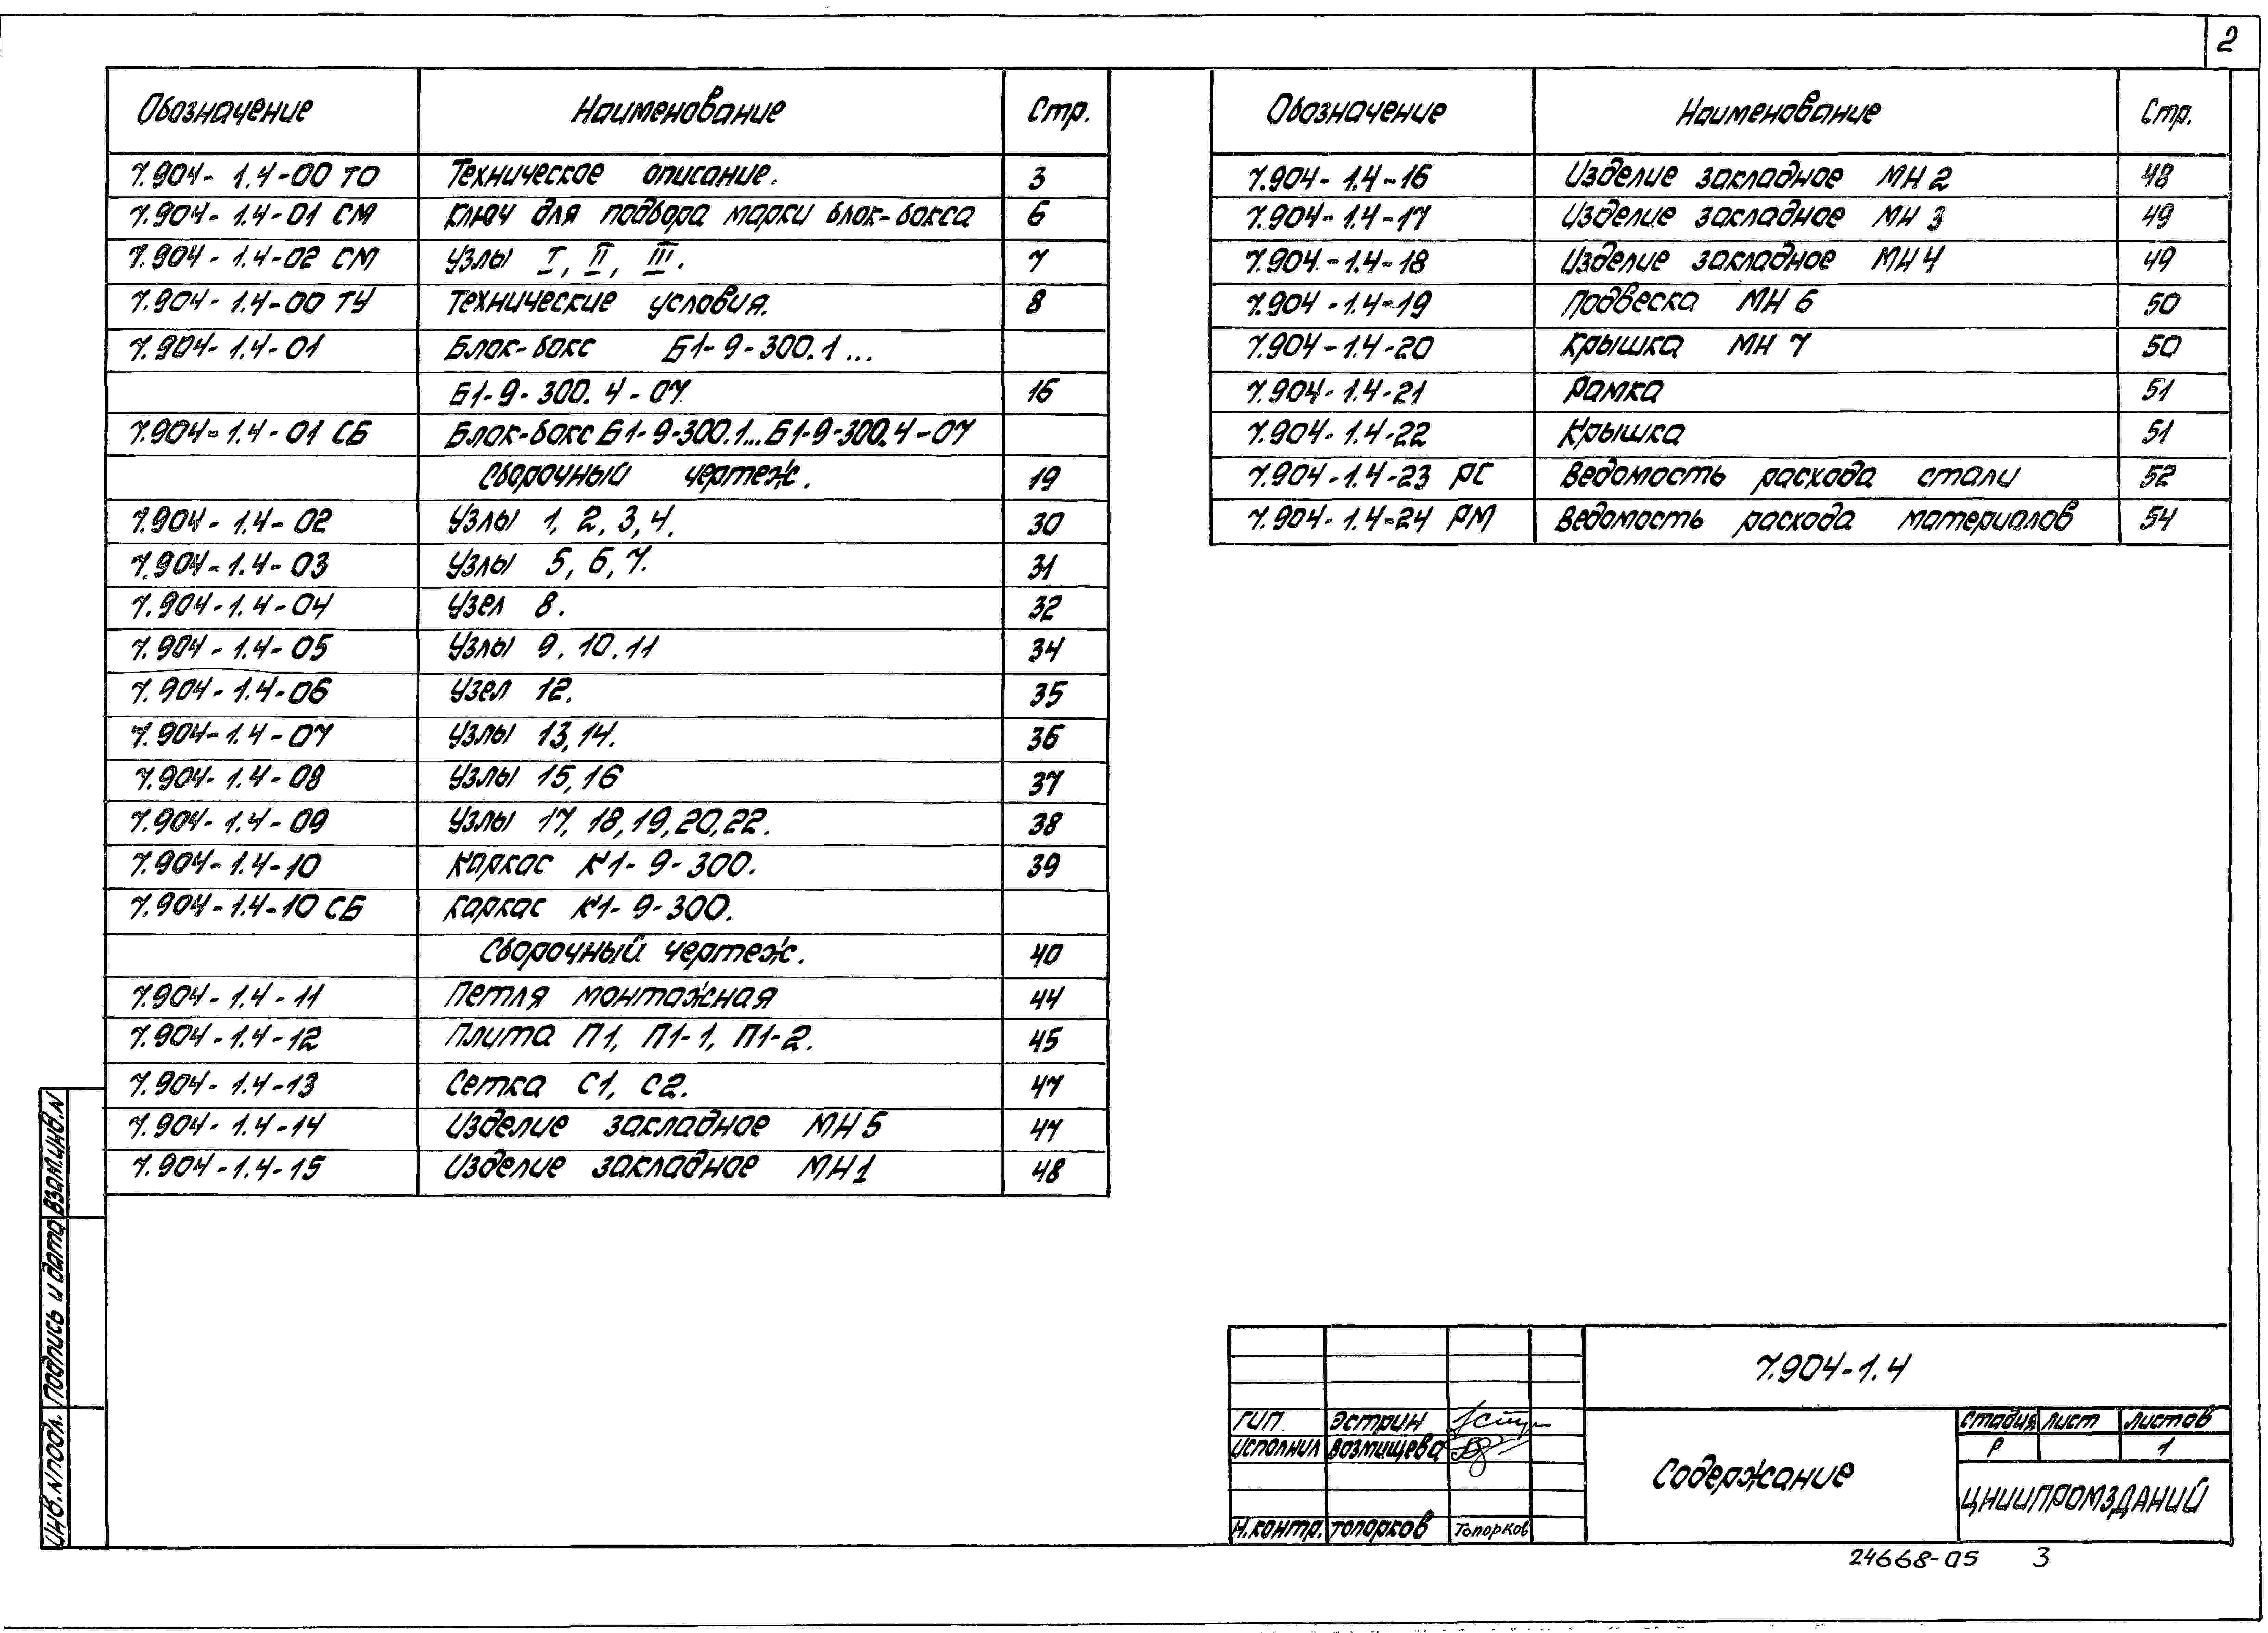 2
Обозначение Наименование Стр.
7.904-1.4-00 ТО Техническое описание. 3
7.904-1.4-01 СМ Ключ для подбора марки блок-бокса 6
7.904-1.4-02 СМ Узлы I, II, III. 7
7.904-1.4-00 ТУ Технические условия. 8
7.904-1.4-01 Блок-бокс Б1-9-300.1...
Б1-9-300.4-07 16
7.904-1.4-01 СБ Блок-бокс Б1-9-300.1...Б1-9-300.4-07
Сборочный чертеж. 19
7.904-1.4-02 Узлы 1, 2, 3, 4. 30
7.904-1.4-03 Узлы 5, 6, 7. 31
7.904-1.4-04 Узел 8. 32
7.904-1.4-05 Узлы 9. 10. 11 34
7.904-1.4-06 Узел 12. 35
7.904-1.4-07 Узлы 13, 14. 36
7.904-1.4-08 Узлы 15, 16 37
7.904-1.4-09 Узлы 17, 18, 19, 20, 22. 38
7.904-1.4-10 Каркас К1-9-300. 39
7.904-1.4-10 СБ Каркас К1-9-300.
Сборочный чертеж. 40
7.904-1.4-11 Петля монтажная 44
7.904-1.4-12 Плита П1, П1-1, П1-2. 45
7.904-1.4-13 Сетка С1, С2. 47
7.904-1.4-14 Изделие закладное МН5 47
7.904-1.4-15 Изделие закладное МН1 48
Обозначение Наименование Стр.
7.904-1.4-16 Изделие закладное МН2 48
7.904-1.4-17 Изделие закладное МН 3 49
7.904-1.4-18 Изделие закладное МН4 49
7.904-1.4-19 Подвеска МН 6 50
7.904-1.4-20 Крышка МН 7 50
7.904-1.4-21 Рамка 51
7.904-1.4-22 Крышка 51
7.904-1.4-23 РС Ведомость расхода стали 52
7.904-1.4-24 РМ Ведомость расхода материалов 54
Инв.N подл. Подпись и дата Взам.инв.N
7.904-1.4
ГИП Эстрин
Исполнил Возмищева
Н.контр. Топорков Топорков
Содержание
Стадия Лист Листов
Р 1
ЦНИИПРОМЗДАНИЙ
24668-05 3